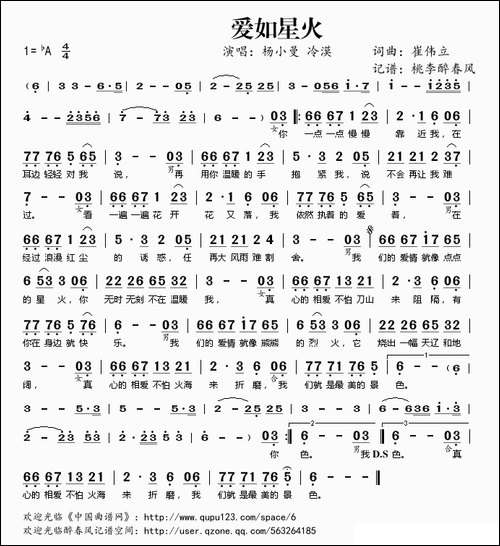 爱如星火
1=♭A 4/4
演唱：杨小曼 冷漠
词曲：崔伟立
记谱：桃李醉春风
(6 | 3 3-6·5 | 2 - - | 03·6 06 i·7 | i - -i235
4 -2356 | 7·53 23 | 6 - - 03 ‖: 66 67 1 23 | 2·3 6 03
女你 一点一点慢慢 靠近我，在
77 76 5 65 | 3 - - 03 | 66 67 1 23 | 2·3 5 05 | 21 21 22 64
耳边轻轻对我 说， 男再 用你温暖的手 抱紧我，说 不会再让我难
7 - - 03 | 66 67 1 23 | 2·3 6 03 | 77 76 5 65 | 3 - - 03
过。 女看 一遍一遍花开 花又落，我 依然执着的爱着， 男在
66 67 1 23 | 2·3 5 05 | 21 21 2 24 | 3 - - 03 | 66 67 i7 65
经过浪漫红尘 的诱惑，任 再大风雨难割 舍。 男我 们的爱情就像点点
6 53 3 06 | 22 26 65 32 | 3 - - 03 | 66 67 13 21 | 2·3 6 06
的星火，你 无时无刻不在温暖 我， 女真 心的相爱不怕刀山 来阻隔，有
77 75 5 76 | 6 - - 03 | 66 67 i7 65 | 6 53 3 06 | 22 26 65 32
你在身边就快 乐。 男我 们的爱情就像熊熊 的烈火，它 烧出一幅天辽和地
3 - - 03 | 66 67 13 21 | 2·3 6 06 | 77 71 75 76 | 6 - - (6
阔， 女真 心的相爱不怕火海 来折磨，合我 们就是最美的景 色。
3 - - 5·3 | 2 - - 5·3 | 3 - - 03 | 6 - 636 i
2 -23 53 | 2·7 65 | 6 - - 03 :‖ 6 - - 03 :‖ 6 - - 03
女你 色。 男我 D.S 色。 合真
66 67 13 21 | 2·3 6 06 | 77 71 75 76 5 | 6 - - ‖
心的相爱不怕火海 来折磨，我 们就是最美的景 色。
欢迎光临《中国曲谱网》：http://www.qupu123.com/space/6
欢迎光临醉春风记谱空间：http://user.qzone.qq.com/563264185